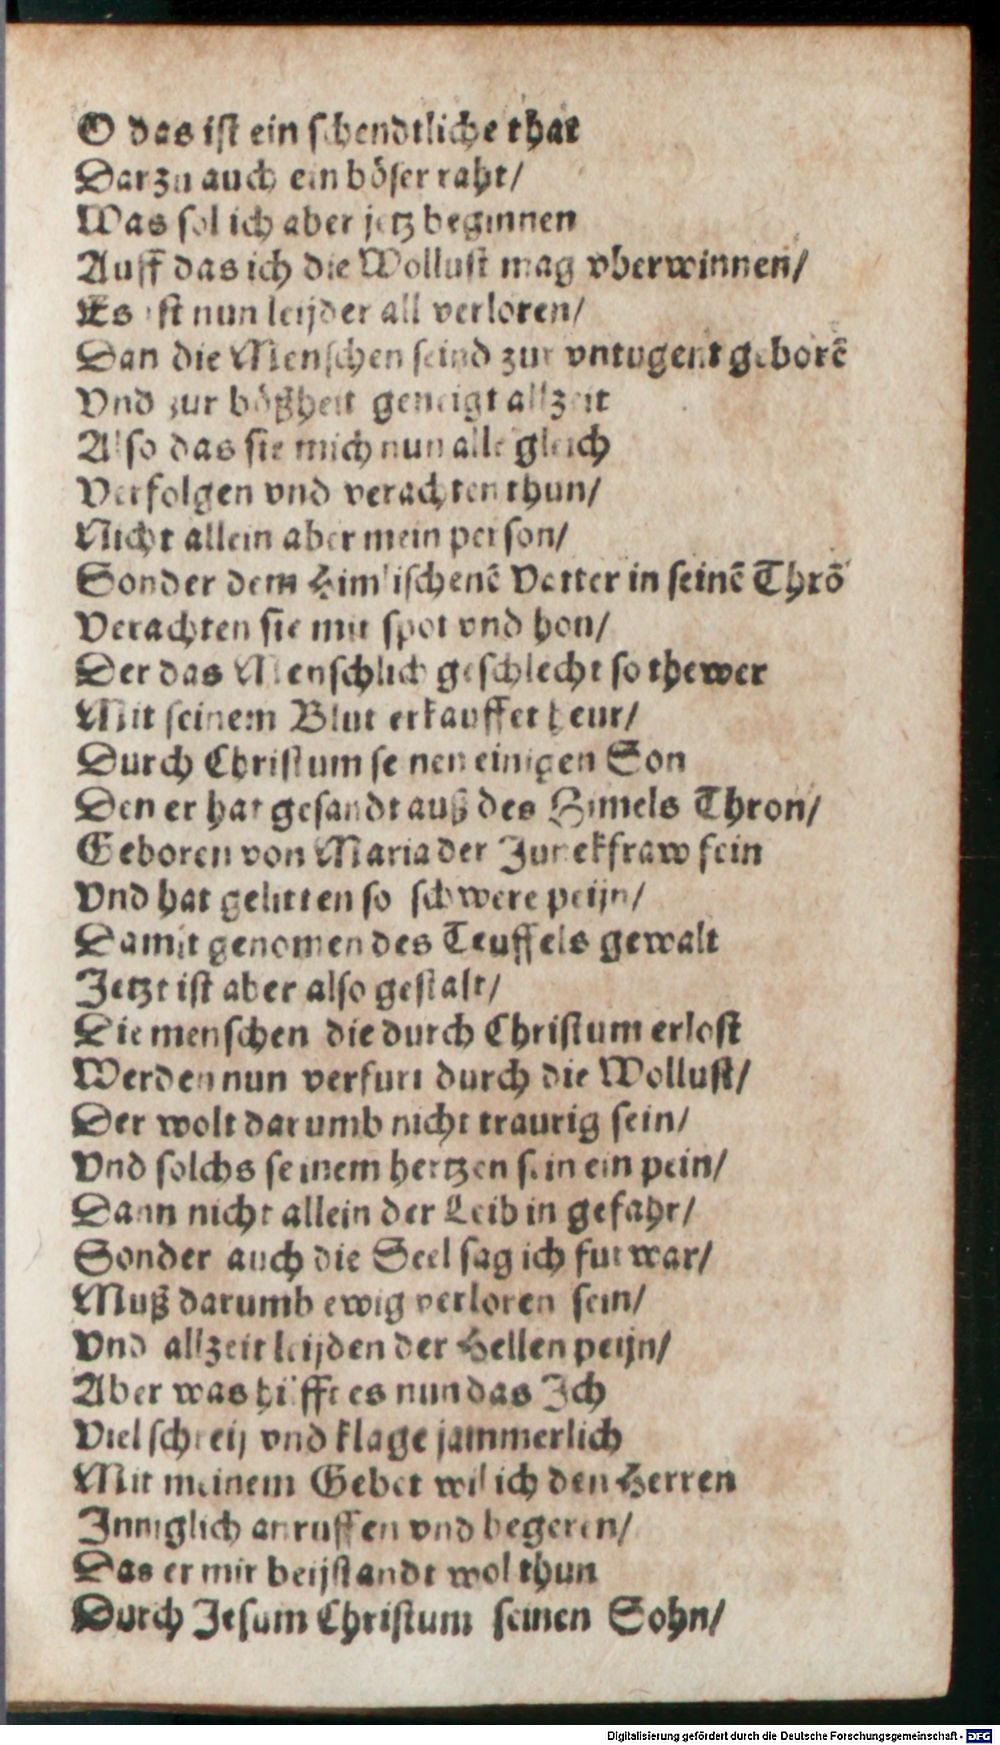 O das ist ein schendtliche that
Darzu auch ein böser raht/
Was sol ich aber jetz beginnen
Auff das ich die Wollust mag vberwinnen/
Es ist nun leijder all verloren/
Dan die Menschen seind zur vntugent geborē
Vnd zur bößheit geneigt allzeit
Also das sie mich nun alle gleich
Verfolgen vnd verachten thun/
Nicht allein aber mein person/
Sonder dem Himlischenē Vatter in seinē Thrō
Verachten sie mit spot vnd hon/
Der das Menschlich geschlecht so thewer
Mit seinem Blut erkauffet heur/
Durch Christum seinen einigen Son
Den er hat gesandt auß des Himels Thron/
Geboren von Maria der Junckfraw fein
Vnd hat gelitten so schwere peijn/
Damit genomen des Teuffels gewalt
Jetzt ist aber also gestalt/
Die menschen die durch Christum erlost
Werden nun verfurt durch die Wollust/
Der wolt darumb nicht traurig sein/
Vnd solchs seinem hertzen sein ein pein/
Dann nicht allein der Leib in gefahr/
Sonder auch die Seel sag ich furwar/
Muß darumb ewig verloren sein/
Vnd allzeit leijden der Hellen peijn/
Aber was hilfft es nun das Ich
Viel schreij vnd klage jammerlich
Mit meinem Gebet wil ich den Herren
Inniglich anruffen vnd begeren/
Das er mir beijstandt wol thun
Durch Jesum Christum seinen Sohn/
Digitalisierung gefördert durch die Deutsche Forschungsgemeinschaft - DFG